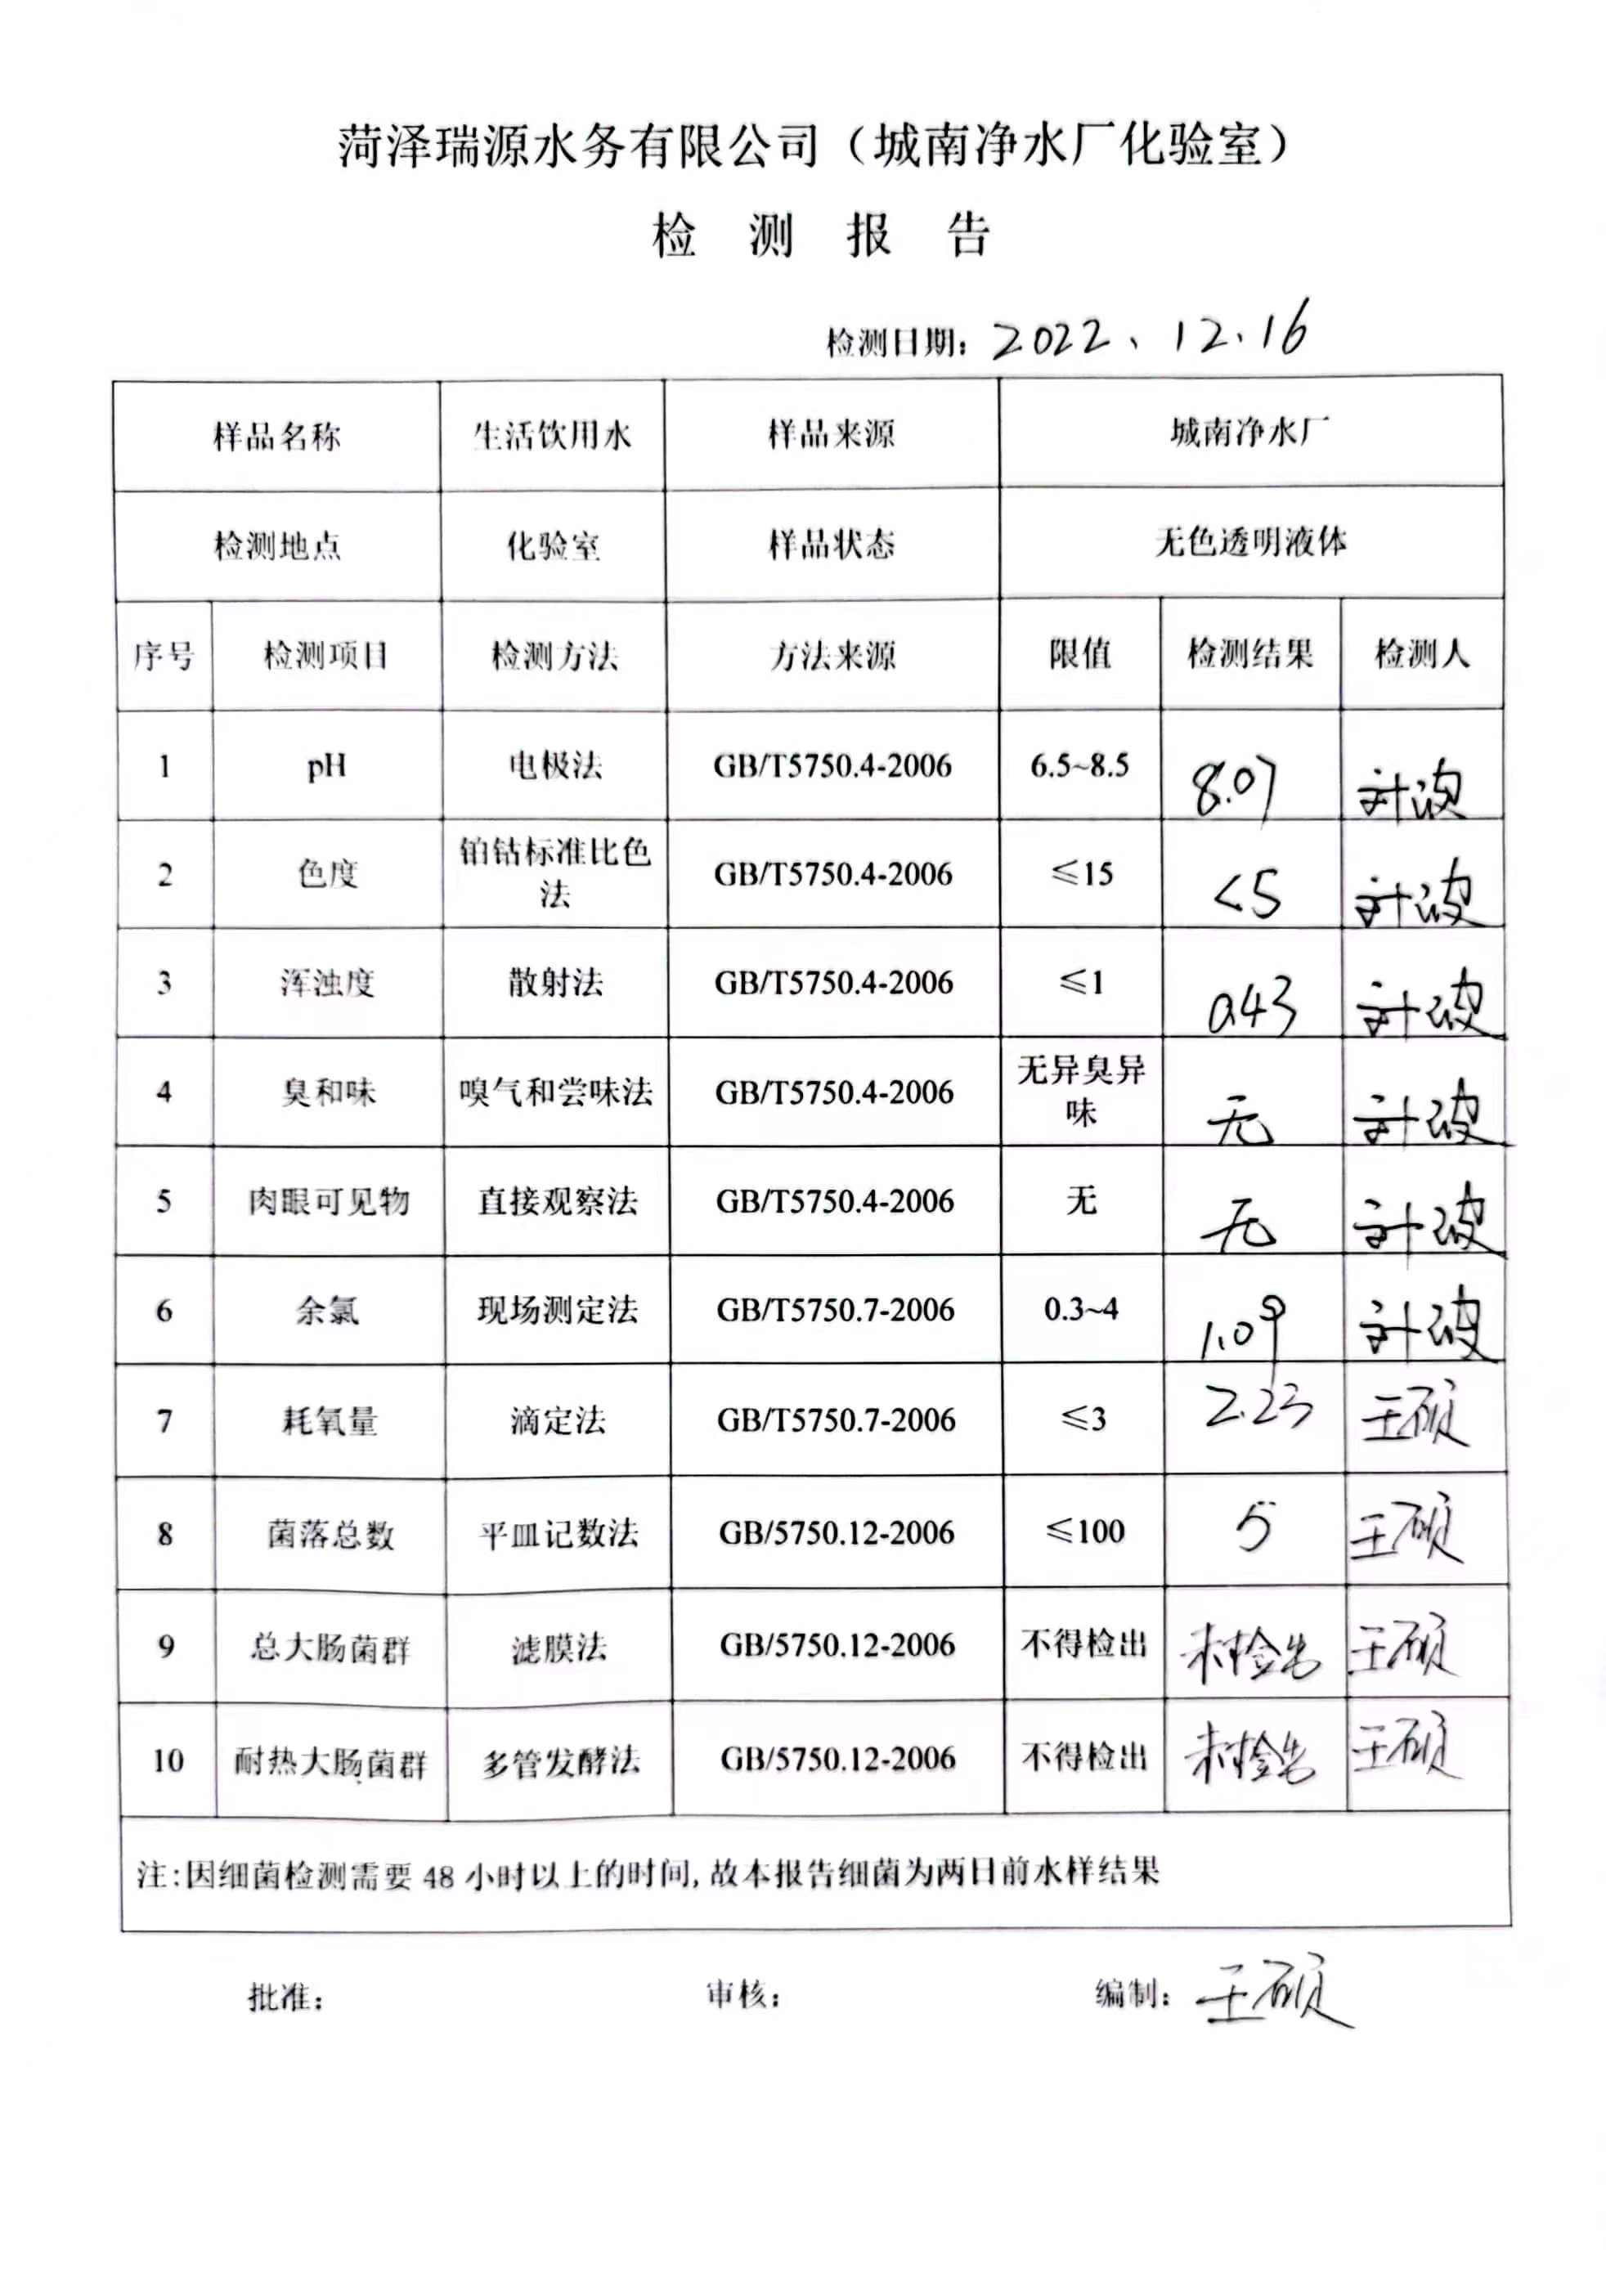 菏泽瑞源水务有限公司（城南净水厂化验室）
检 测 报 告
检测日期： 2022、12.16
样品名称 生活饮用水 样品来源 城南净水厂
检测地点 化验室 样品状态 无色透明液体
序号 检测项目 检测方法 方法来源 限值 检测结果 检测人
1 pH 电极法 GB/T5750.4-2006 6.5~8.5 8.07
2 色度 铂钴标准比色法 GB/T5750.4-2006 ≤15 <5
3 浑浊度 散射法 GB/T5750.4-2006 ≤1 0.43
4 臭和味 嗅气和尝味法 GB/T5750.4-2006 无异臭异味 无
5 肉眼可见物 直接观察法 GB/T5750.4-2006 无 无
6 余氯 现场测定法 GB/T5750.7-2006 0.3~4 1.09
7 耗氧量 滴定法 GB/T5750.7-2006 ≤3 2.23 王硕
8 菌落总数 平皿记数法 GB/5750.12-2006 ≤100 5 王硕
9 总大肠菌群 滤膜法 GB/5750.12-2006 不得检出 未检出 王硕
10 耐热大肠菌群 多管发酵法 GB/5750.12-2006 不得检出 未检出 王硕
注:因细菌检测需要 48 小时以上的时间,故本报告细菌为两日前水样结果
批准： 审核： 编制： 王硕